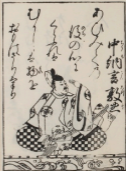 中納言敦忠
あひみての
後の心に
くらふれは
むかしは物を
おもはさりけり